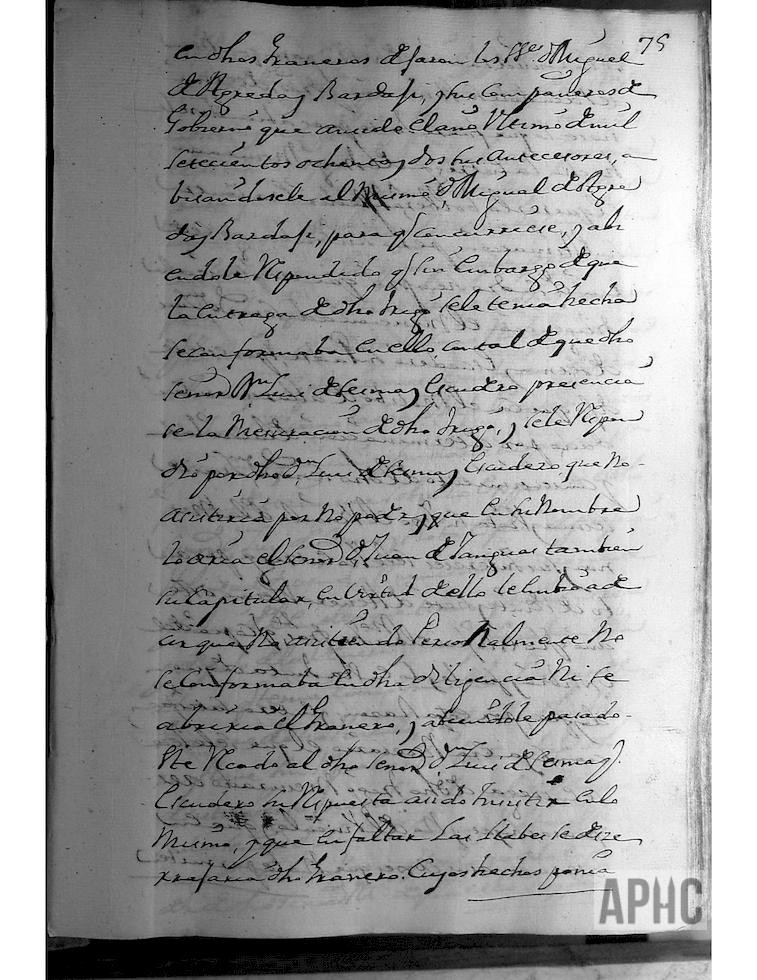 75
en dhos Graneros dejaron los SSes Dn Miguel
de Agreda y Bardaji, y sus Compañeros de
Gobierno que an sido el año Ultimo de mil
Setecientos ochenta y dos sus antecesores, a
bisandosele al Mismo Dn Miguel de Agre
da y Bardaji, para q concurriese, y abi
endole Respondido q sin Embargo de que
la entrega de dho trigo se le tenia hecha
se conformaba en ello, con tal de que dho
señor Dn Luis de Sesma y Escudero presencia
se la Mesuracion de dho trigo, y se le Respon
dio por dho Dn Luis de Sesma y Escudero que No
asistiria por No poder, y que en su Nombre
lo aria el señor Dn Juan de Tanguas tambien
su Capitular, en Virtud de ello le embio a de
cir que No asistiendo Personalmente No
se Conformaba en dha diligencia Ni se
abriria el Granero, y abiendole pasado
este Recado al dho señor Dn Luis de Sesma y
Escudero su Respuesta a sido insistir en lo
Mismo, y que en faltar Las Llabes se dece
rrajaria dho Granero. Cuyos hechos ponia
APHC